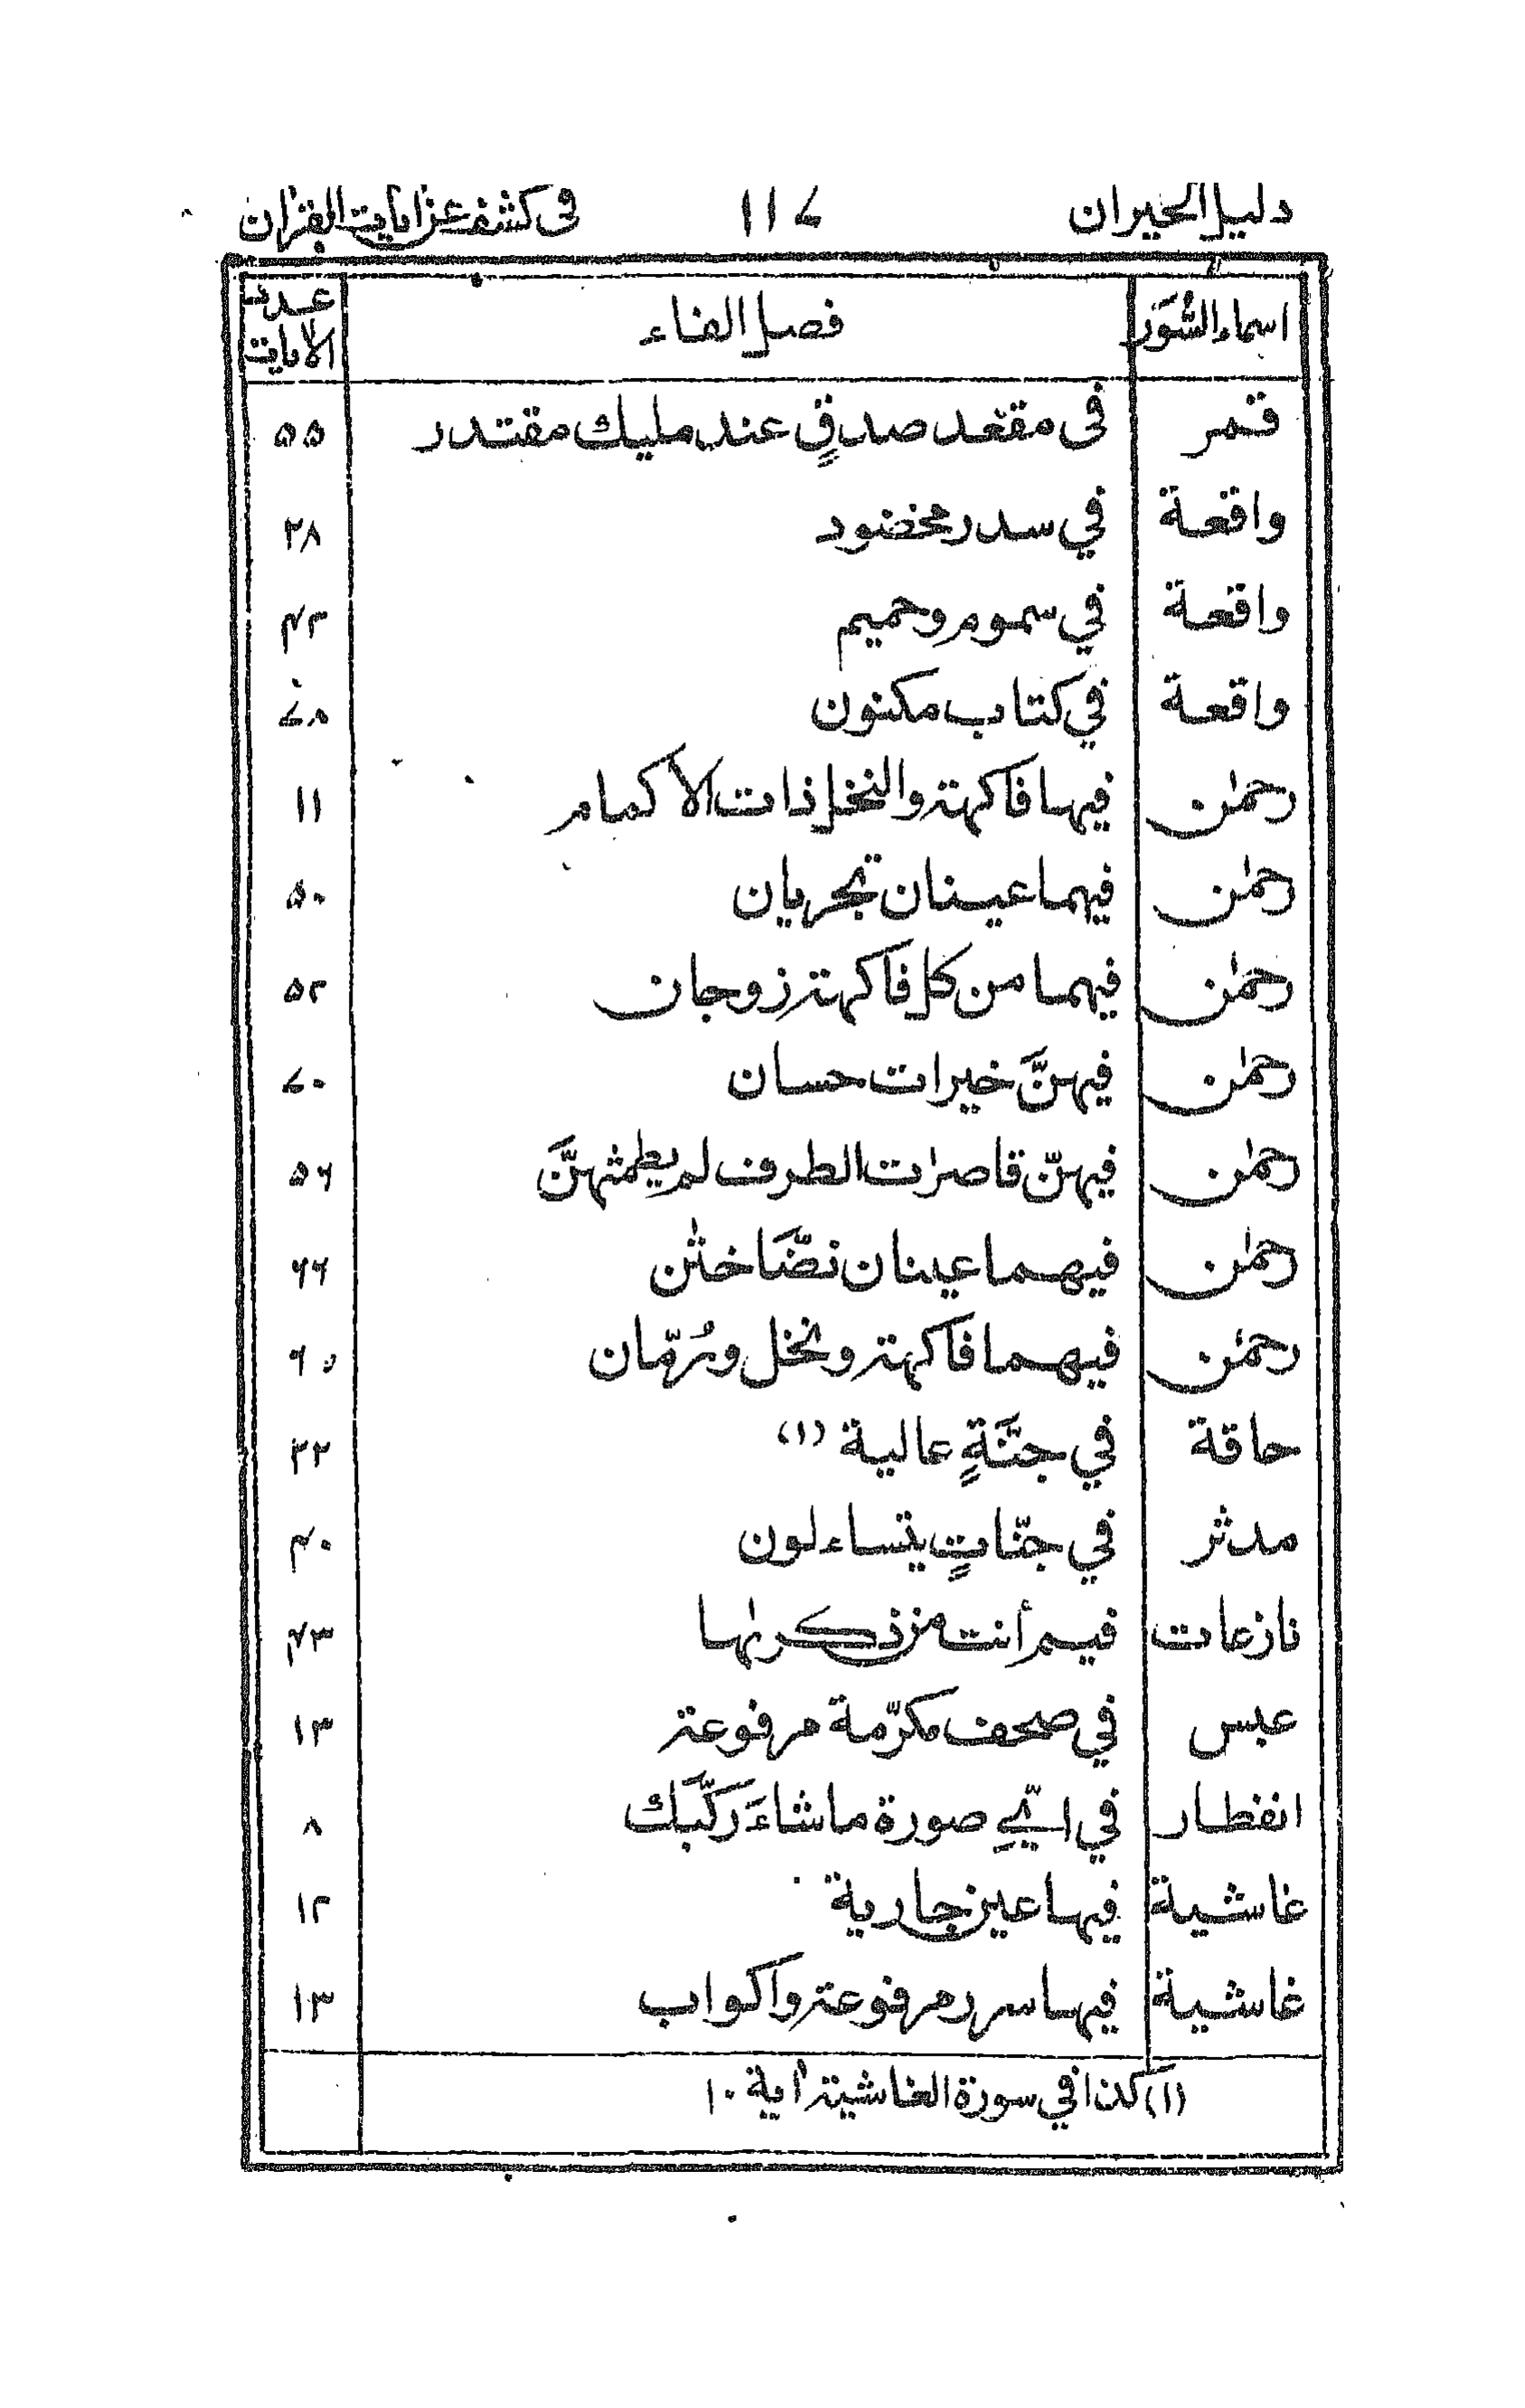 دليل الحيران ١١٧ فى كشف عن اٰيات القراٰن
اسماء السُّوَر فصل الفاء عدد الاٰيات
قمر فى مقعد صدقٍ عند مليك مقتدر ۵۵
واقعة في سدر مخضود ٢٨
واقعة في سموم وحميم ۴٢
واقعة في كتاب مكنون ٧٨
رحمٰن فيها فاكهة والنخل ذات الأكمام ١١
رحمٰن فيهما عينان تجريان ۵٠
رحمٰن فيهما من كل فاكهة زوجان ۵٢
رحمٰن فيهنَّ خيرات حسان ٧٠
رحمٰن فيهنّ قاصرات الطرف لم يطمثهنَّ ۵۶
رحمٰن فيهما عينان نضّاختٰن ۶۶
رحمٰن فيهما فاكهة ونخل ورُمّان
حاقة في جنَّةٍ عالية (١) ٢٢
مدثر في جنّاتٍ يتساءلون ۴٠
نازعات فيم أنت من ذكرىٰها ۴٣
عبس في صحف مكرّمة مرفوعة ١٣
انفطار في ايّ صورة ما شاءَ ركَّبك ٨
غاشية فيها عين جارية ١٢
غاشية فيها سرر مرفوعة واكواب ١٣
(١) كذا في سورة الغاشية اٰية ١٠